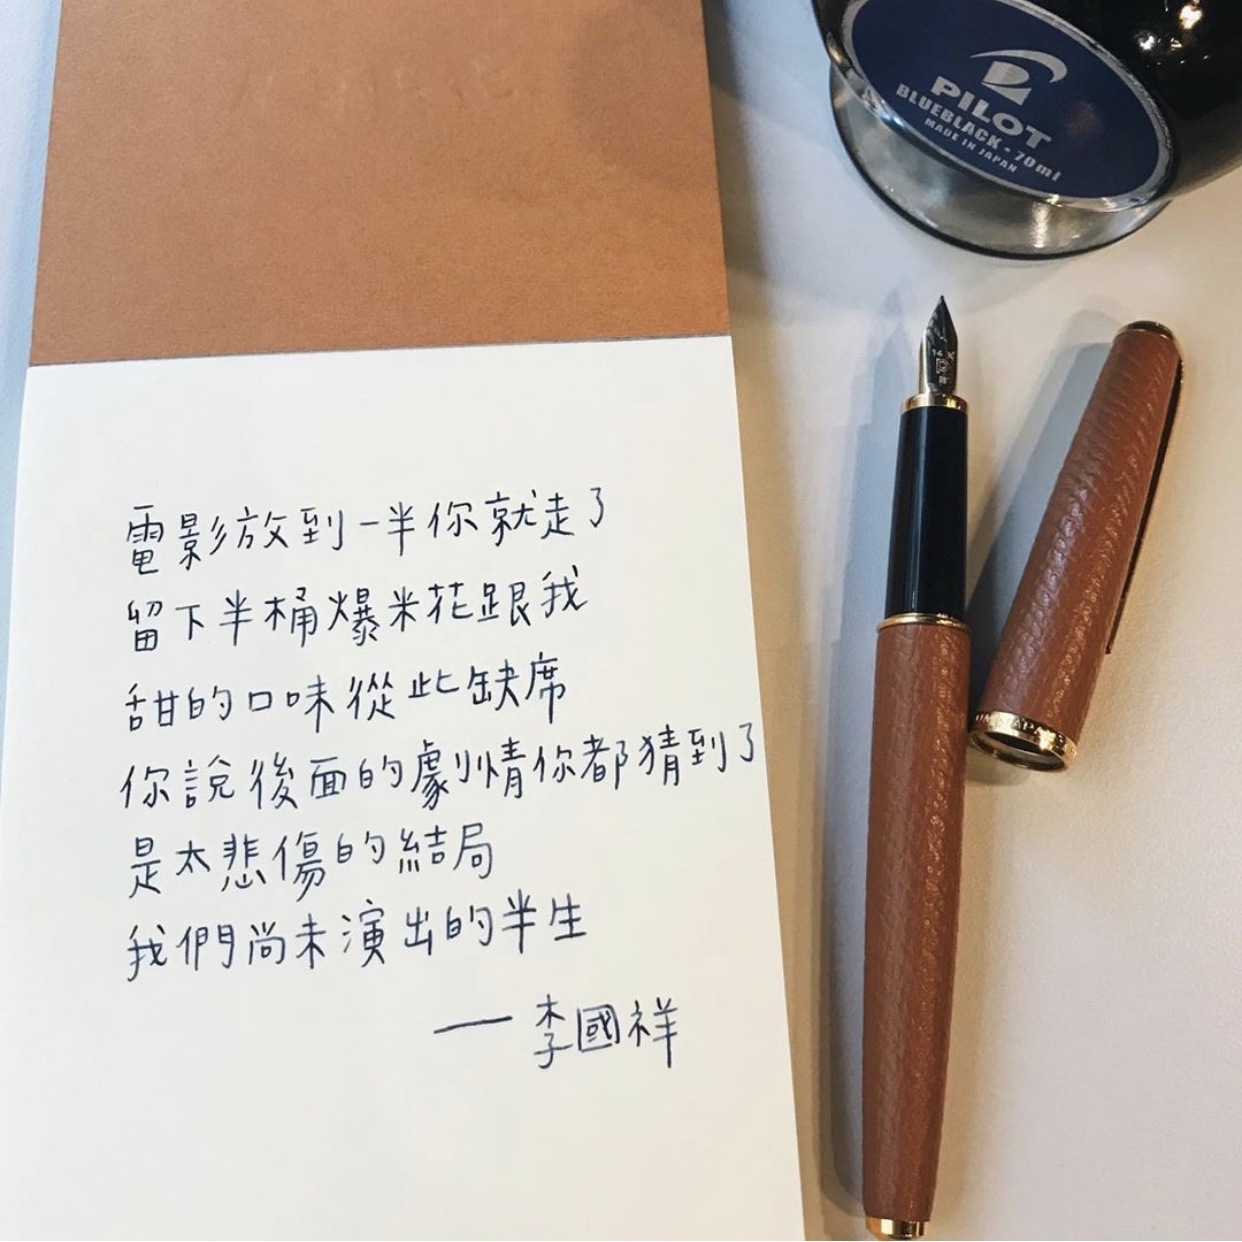 PILOT
BLUEBLACK・70ml
MADE IN JAPAN
14K
電影放到一半你就走了
留下半桶爆米花跟我
甜的口味從此缺席
你說後面的劇情你都猜到了
是太悲傷的結局
我們尚未演出的半生
——李國祥